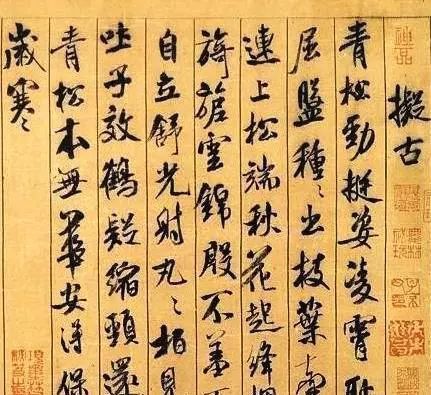 神品
擬古
青松勁挺姿凌霄恥
屈盤種〻出枝葉牽
連上松端秋花起絳
旖旎雲錦殷不羞不
自立舒光射丸〻柏見
吐子效鶴疑縮頸還
青松本無華安得保
歲寒